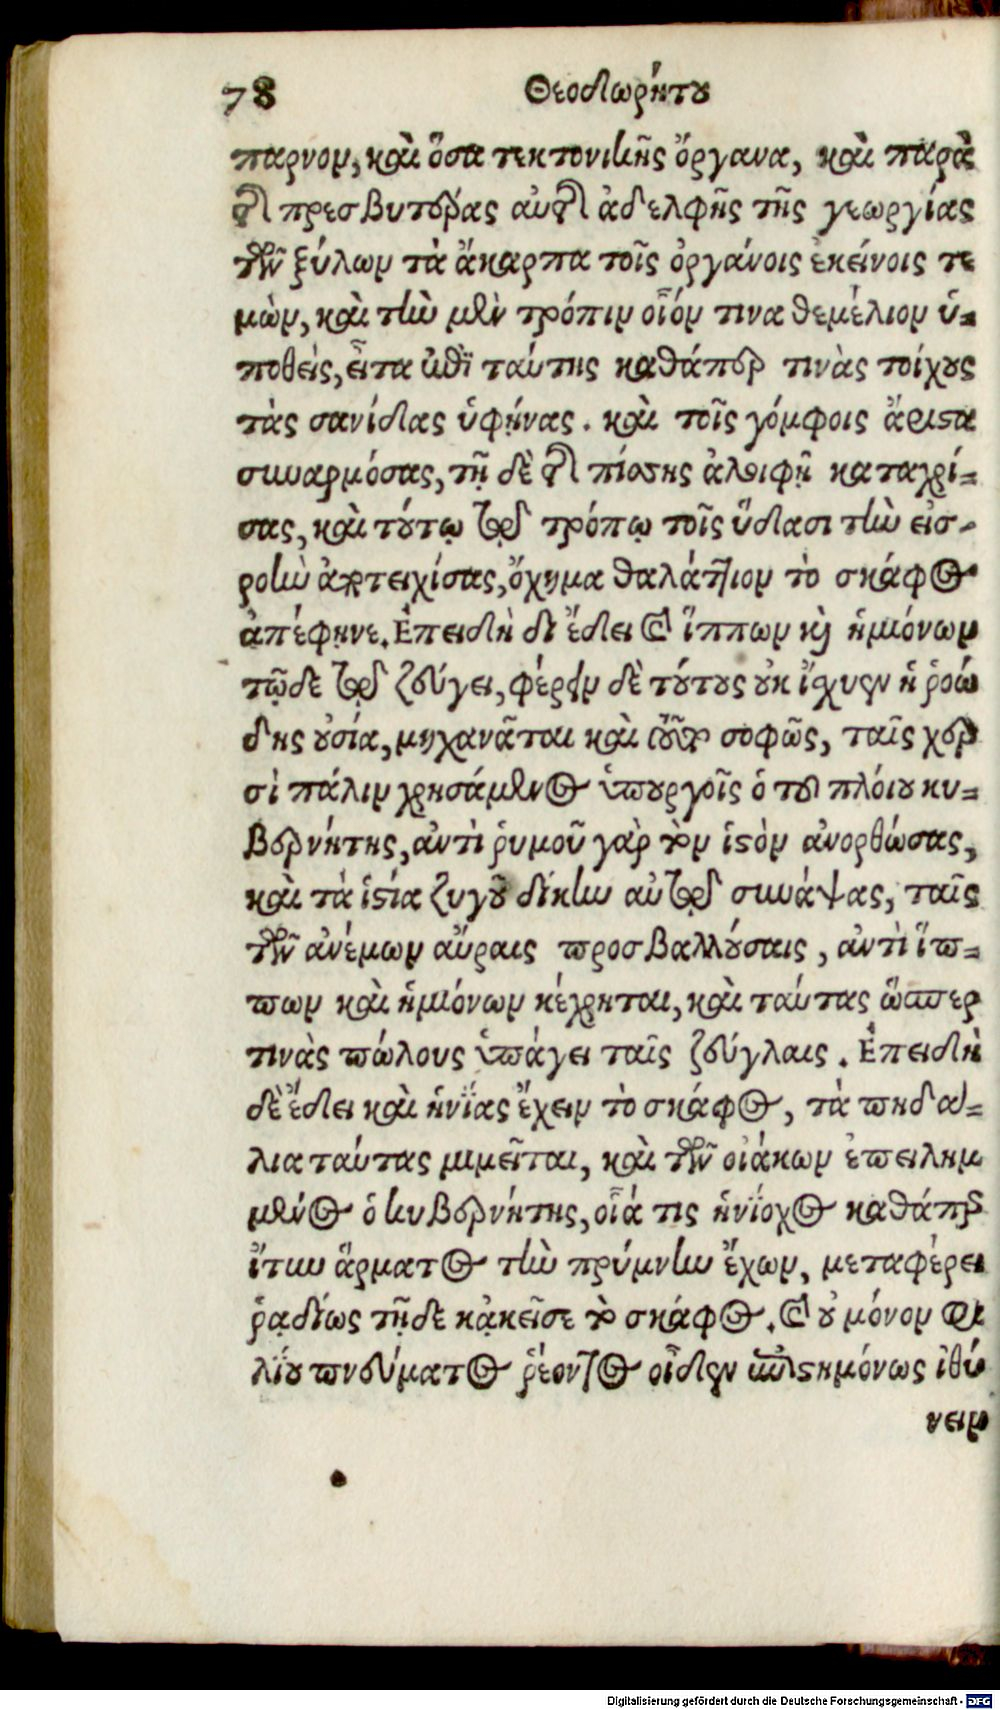 78 Θεοδωρήτου
παρνον, καὶ ὅσα τεκτονικῆς ὄργανα, καὶ παρὰ
τῆς πρεσβυτέρας αὐτῆς ἀδελφῆς τῆς γεωργίας
τῶν ξύλων τὰ ἄκαρπα τοῖς ὀργάνοις ἐκείνοις τε
μὼν, καὶ τὴν μὲν τρόπιν οἷόν τινα θεμέλιον ὑ-
ποθεὶς, εἶτα ἐπὶ ταύτης καθάπερ τινὰς τοίχους
τὰς σανίδας ὑφήνας. καὶ τοῖς γόμφοις ἄριστα
συναρμόσας, τῇ δὲ τῆς πίσσης ἀλοιφῇ καταχρί-
σας, καὶ τούτῳ τῷ τρόπῳ τοῖς ὕδασι τὴν εἰσ-
ροὴν ἀποτειχίσας, ὄχημα θαλάττιον τὸ σκάφος
ἀπέφηνε. Ἐπειδὴ δὲ ἔδει καὶ ἵππων καὶ ἡμιόνων
τῷδε τῷ ζεύγει, φέρειν δὲ τούτους οὐκ ἴσχυεν ἡ ῥοώ
δης οὐσία, μηχανᾶται καὶ τοῦτο σοφῶς, ταῖς χερ
σὶ πάλιν χρησάμενος ὑπουργοῖς ὁ τοῦ πλοίου κυ-
βερνήτης, ἀντὶ ῥυμοῦ γὰρ τὸν ἱστὸν ἀνορθώσας,
καὶ τὰ ἱστία ζυγοῦ δίκην αὐτῷ συνάψας, ταῖς
τῶν ἀνέμων αὔραις προσβαλλούσαις, ἀντὶ ἵπ-
πων καὶ ἡμιόνων κέχρηται, καὶ ταύτας ὥσπερ
τινὰς πώλους ὑπάγει ταῖς ζεύγλαις. Ἐπειδὴ
δὲ ἔδει καὶ ἡνίας ἔχειν τὸ σκάφος, τὰ πηδά-
λια ταύτας μιμεῖται, καὶ τῶν οἰάκων ἐπειλημ
μένος ὁ κυβερνήτης, οἷά τις ἡνίοχος καθάπερ
ἴτυν ἅρματος τὴν πρύμνην ἔχων, μεταφέρει
ῥᾳδίως τῇδε κἀκεῖσε τὸ σκάφος. καὶ οὐ μόνον τε
λίου πνεύματος ῥέοντος οἶδεν ἐπιστημόνως ἰθύ
νειν
Digitalisierung gefördert durch die Deutsche Forschungsgemeinschaft - DFG